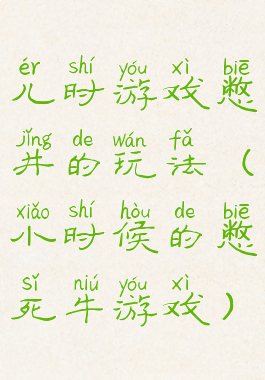 ér shí yóu xì biē
儿时游戏憋
jǐng de wán fǎ
井的玩法（
xiǎo shí hòu de biē
小时候的憋
sǐ niú yóu xì
死牛游戏）